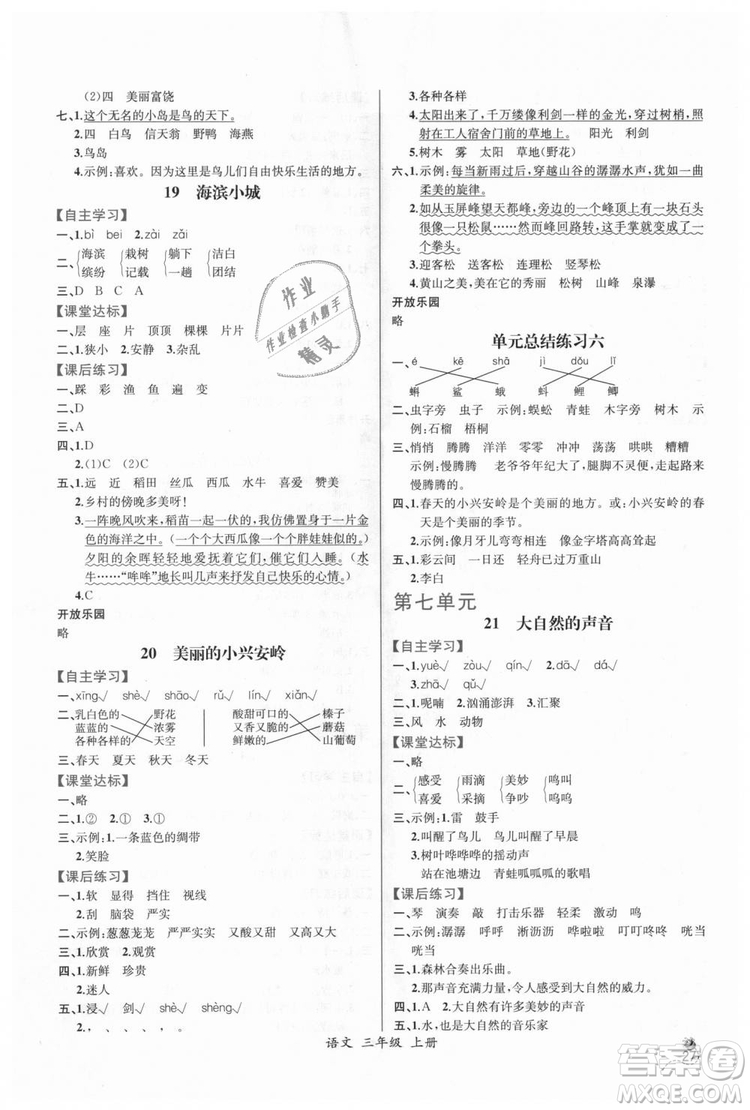 (2)四 美丽富饶
七、1.这个无名的小岛是鸟的天下。
2.四 白鸟 信天翁 野鸭 海燕
3.鸟岛
4.示例:喜欢。因为这是鸟儿们自由快乐生活的地方。
19 海滨小城
【自主学习】
一、1.bì bei 2.zài zǎi
二、{海滨 {栽树 {躺下 {洁白
缤纷 记载 一趟 团结
三、D B C A
【课堂达标】
一、层 座 片 顶顶 棵棵 片片
二、1.狭小 2.安静 3.杂乱
【课后练习】
一、踩 彩 渔 鱼 遍 变
二、D
三、A
四、1.D
2.(1)C (2)C
五、1.远 近 稻田 丝瓜 西瓜 水牛 喜爱 赞美
2.乡村的傍晚多美呀!
3.一阵晚风吹来,稻苗一起一伏的,我仿佛置身于一片金
色的海洋之中。(一个个大西瓜像一个个胖娃娃似的。)
夕阳的余晖轻轻地爱抚它们,催它们入眠。(水
牛……“哞哞”地长叫几声来抒发自己快乐的心情。)
开放乐园
略
20 美丽的小兴安岭
【自主学习】
一、xīng√ shè√ shāo√ rǔ√ xiǎn√
二、乳白色的 野花 酸甜可口的 榛子
蓝蓝的 浓雾 又香又脆的 蘑菇
各种各样的 天空 鲜嫩的 山葡萄
三、春天 夏天 秋天 冬天
【课堂达标】
一、略
二、1.② ① 2.① ②
三、示例:1.一条蓝色的绸带
2.笑脸
【课后练习】
一、1.软 显得 挡住 视线
2.刮 脑袋 严实
二、示例:葱葱茏茏 严严实实 又酸又甜 又高又大
三、1.欣赏 2.观赏
四、1.新鲜 珍贵
2.迷人
五、1.浸√ 剑√ shè√ shèng√
2., 、 、 、 , 。
3.各种各样
4.太阳出来了,千万缕像利剑一样的金光,穿过树梢,照
射在工人宿舍门前的草地上。 阳光 利剑
5.树木 雾 太阳 草地(野花)
六、1.示例:每当新雨过后,穿越山谷的潺潺水声,犹如一曲
柔美的旋律。
2.如从玉屏峰望天都峰,旁边的一个小山头有一块石头
很像一只松鼠……但一时回路转,这座山又变成了一
个拳头。
3.迎客松 送客松 连理松 竖琴松
4.黄山之美,美在它的秀丽 奇松 山峰 泉瀑
开放乐园
略
单元总结练习六
一、é kē shā jì dǒu lǐ
蝌 鲨 蛾 蚪 鲤 鲫
二、虫字旁 鱼字旁 示例:蜈蚣 青蛙 树木 木字旁
示例:石榴 梧桐
三、悄悄 腾腾 洋洋 零零 冲冲 荡荡 哄哄 糟糟
示例:慢腾腾 老爷爷年纪大了,腿脚不灵,走起路来
慢腾腾的。
四、1.春天的小兴安岭是个美丽的地方。或:小兴安岭的春
天是个美丽的季节。
2.示例:像月牙儿弯弯相连 像金字塔高高耸起
五、1.彩云间 一日还 轻舟已过万重山
2.李白
第七单元
21 大自然的声音
【自主学习】
一、1.yuè√ zòu√ qín√ 2.dā√ sà√
3.zhā√ gǔ√
二、1.呢喃 2.汹涌澎湃 3.汇聚
三、风 水 动物
【课堂达标】
一、略
二、{感受 {雨滴 {美妙 {鸣叫
喜爱 采摘 争吵 呜呜
三、示例:1.雷 鼓手
2.叫醒了鸟儿 叫醒了早晨
3.树叶哗哗哗的摇动声
站在池塘边 青蛙呱呱呱的叫声
【课后练习】
一、琴 演奏 敲 打击乐器 轻松 充满
二、示例:潺潺 呼呼 淅沥沥 哗啦啦 叮叮咚咚
咣当咣当
三、1.森林合奏出乐曲。
2.那声音充满力量,令人感受到大自然的威力。
四、1.A 2.大自然有许多美妙的声音
五、1.水,也是大自然的音乐家
语文 三年级 上册
作业
作业检查小助手
精灵